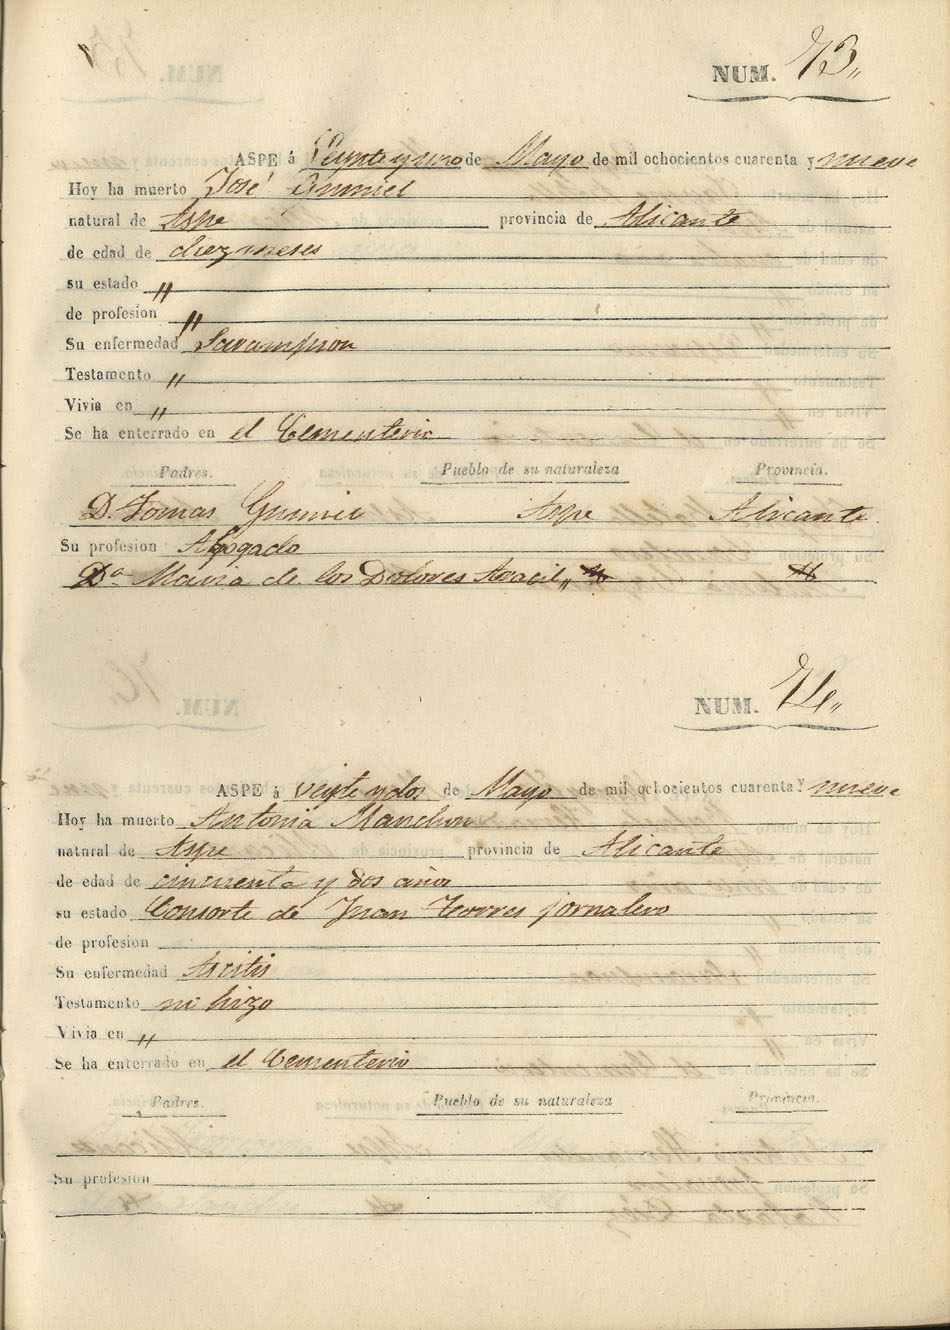 NUM. 73
ASPE á Veynte y uno de Mayo de mil ochocientos cuarenta y nueve
Hoy ha muerto José Gumiel
natural de Aspe provincia de Alicante
de edad de diez meses
su estado "
de profesion "
Su enfermedad Sarampion
Testamento "
Vivia en "
Se ha enterrado en el Cementerio
Padres. Pueblo de su naturaleza Provincia.
D. Tomas Gumiel Aspe Alicante
Su profesion Abogado
Da Maria de los Dolores Aracil "
NUM. 74
ASPE á veynte y dos de Mayo de mil ochocientos cuarenta y nueve
Hoy ha muerto Antonia Manchon
natural de Aspe provincia de Alicante
de edad de cincuenta y dos años
su estado Consorte de Juan Torres jornalero
de profesion
Su enfermedad Ascitis
Testamento no hizo
Vivia en "
Se ha enterrado en el Cementerio
Padres. Pueblo de su naturaleza Provincia.
Su profesion